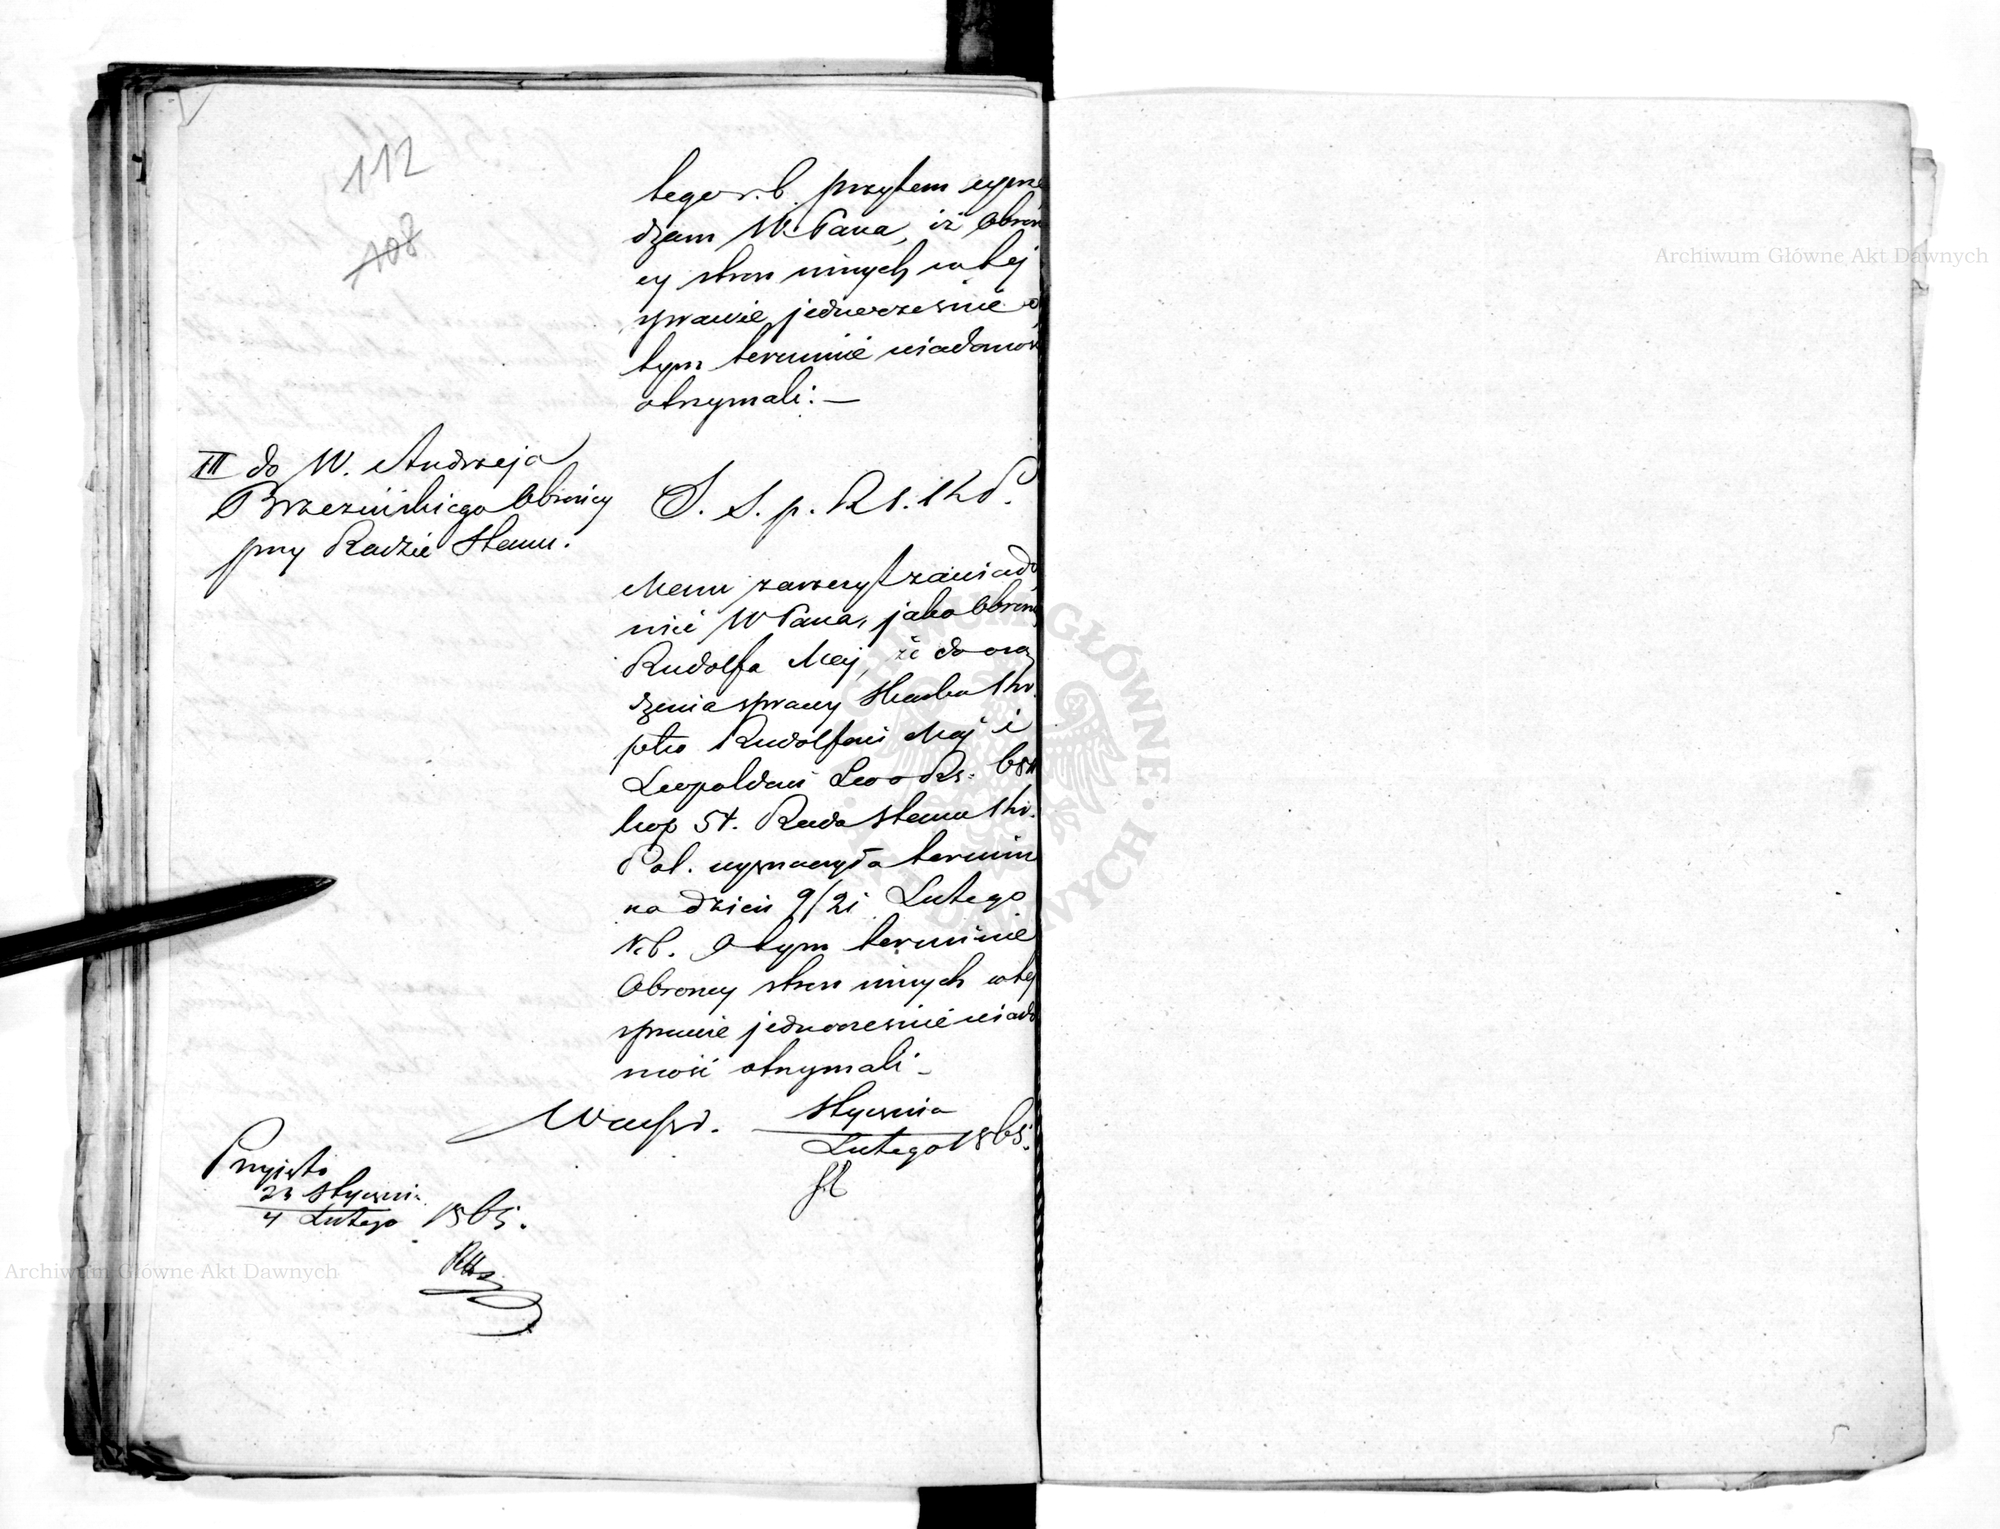 112
108
tego r. b. przytem uprze
dzam W. Pana, iż Obroń
cy stron innych w tej
sprawie jednocześnie o
tym terminie wiadomoś
otrzymali. —
III do W. Andrzeja
Brzezińskiego Obrońcy
przy Radzie Stanu.
S. S. p. R. S. Kr. P.
Mam zaszczyt zawiado
mić W Pana, jako Obrońcę
Rudolfa May, że do osą
dzenia sprawy Skarbu Kr.
ptko Rudolfowi May i
Leopoldowi Leo o Rs.
kop 54. Rada Stanu Kr.
Pol. wyznaczyła termin
na dzień 9/21 Lutego
r. b. O tym terminie
Obrońcy stron innych w tej
sprawie jednocześnie wiado
mość otrzymali —
Stycznia
Lutego 1865.
Przyjęto
23 Stycznia
4 Lutego 1865.
Archiwum Główne Akt Dawnych
Archiwum Główne Akt Dawnych